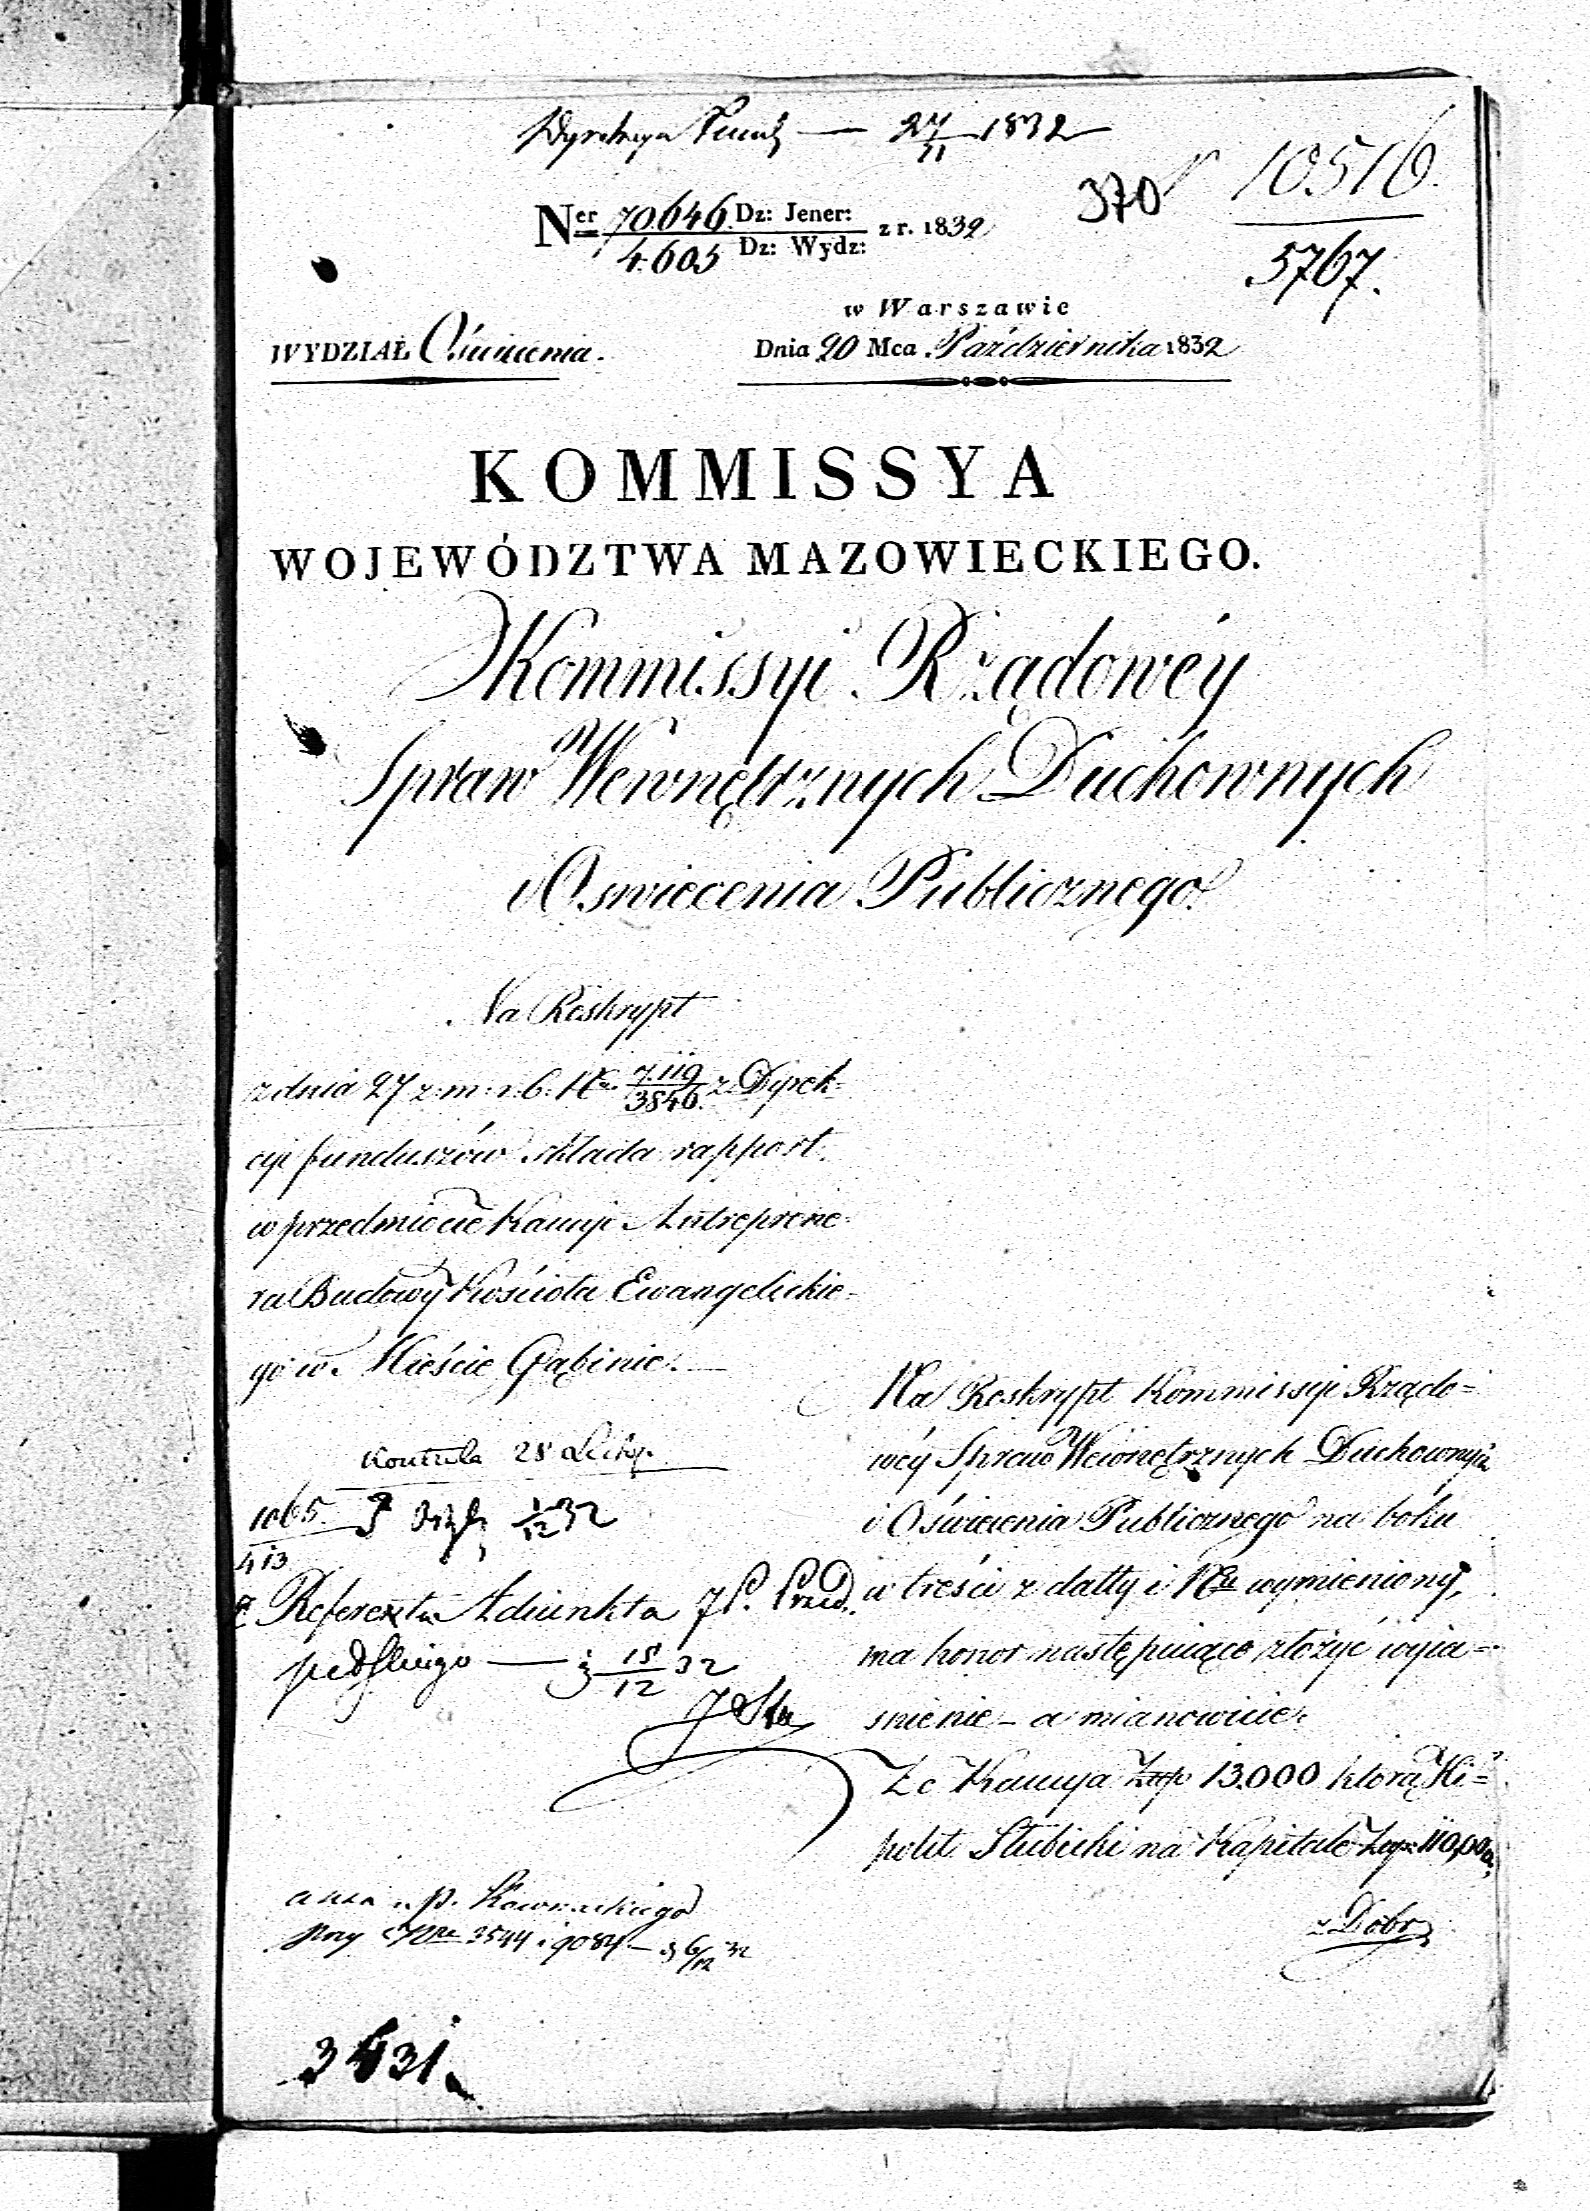 Dyrekcya Fund — 27/11 1832
370 10516/5767.
Ner 70646/4605 Dz: Jener: / Dz: Wydz: z r. 1832
w Warszawie
WYDZIAŁ Oświecenia.
Dnia 20 Mca Października 1832
KOMMISSYA
WOJEWÓDZTWA MAZOWIECKIEGO.
Kommissyi Rządowéy
Spraw Wewnętrznych Duchownych
i Oswiecenia Publicznego
Na Reskrypt
z dnia 27 z: m: r: b: Nr. 7.119/3846. z Dyrek-
cyi funduszów składa rapport
w przedmiocie Kaucyi Antreprene-
ra Budowy Kościoła Ewangelickie-
go w Mieście Gąbinie.
Kontrola 28
1065/413 1/12 32
Referenta Adiunkta
15/12 32
przy Nrze 3544 i 9084 — 6/12 32
3431.
Na Reskrypt Kommissyi Rządo=
wéy Spraw Wewnętrznych Duchownych
i Oświecenia Publicznego na boku
w treści z datty i Nru wymieniony,
ma honor następuiące złożyć wyia=
snienie – a mianowicie:
Że Kaucya Złp 13.000 którą Hi=
polit Słubicki na Kapitale Złp: 110,000,
z Dobr